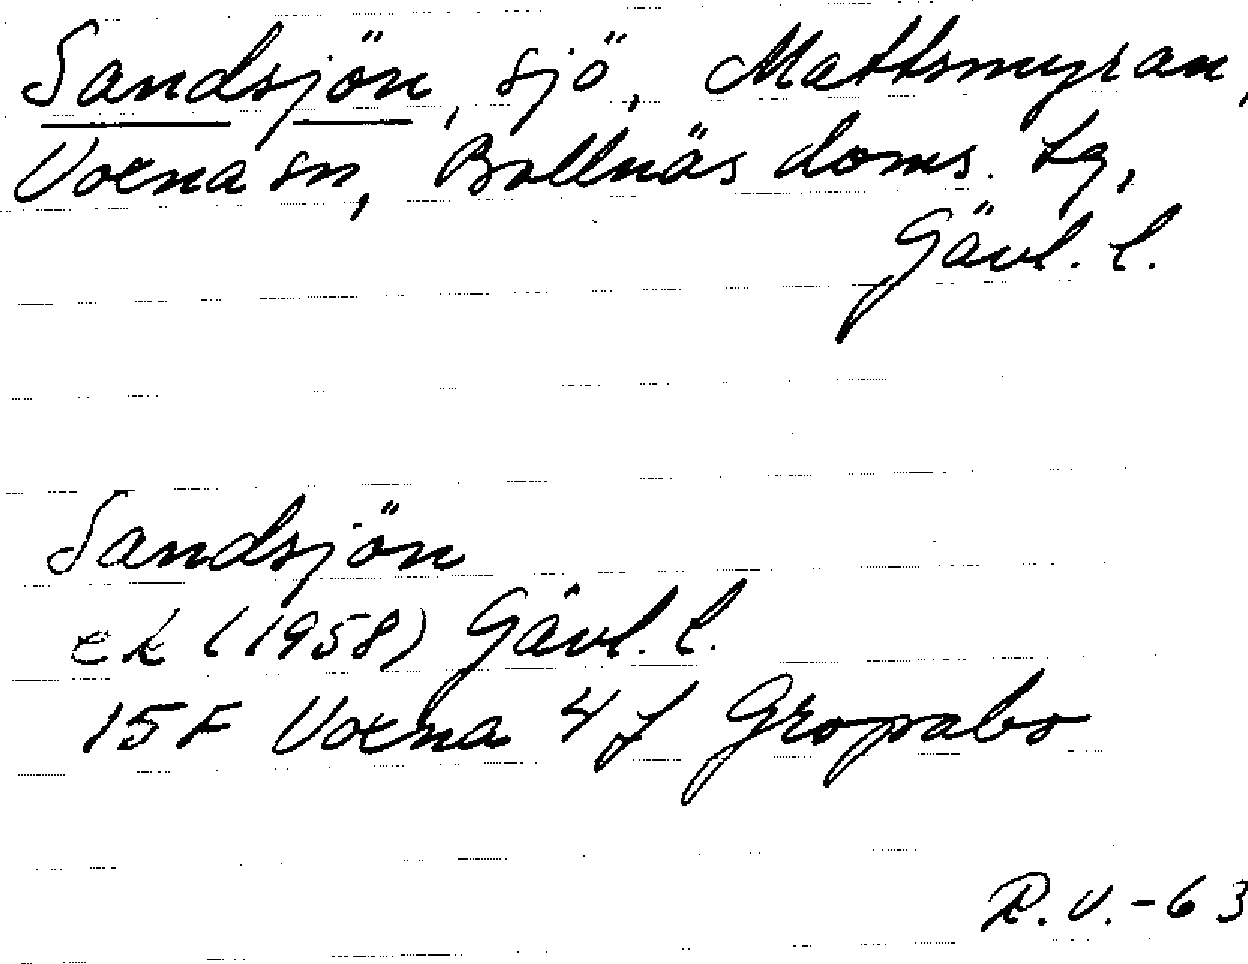 Sandsjön, sjö, Mattsmyran,
Voxna sn, Bollnäs doms. tg,
Gävl. l.
Sandsjön
ek (1958) Gävl. l.
15F Voxna 4f Gropabo
R.V.-63